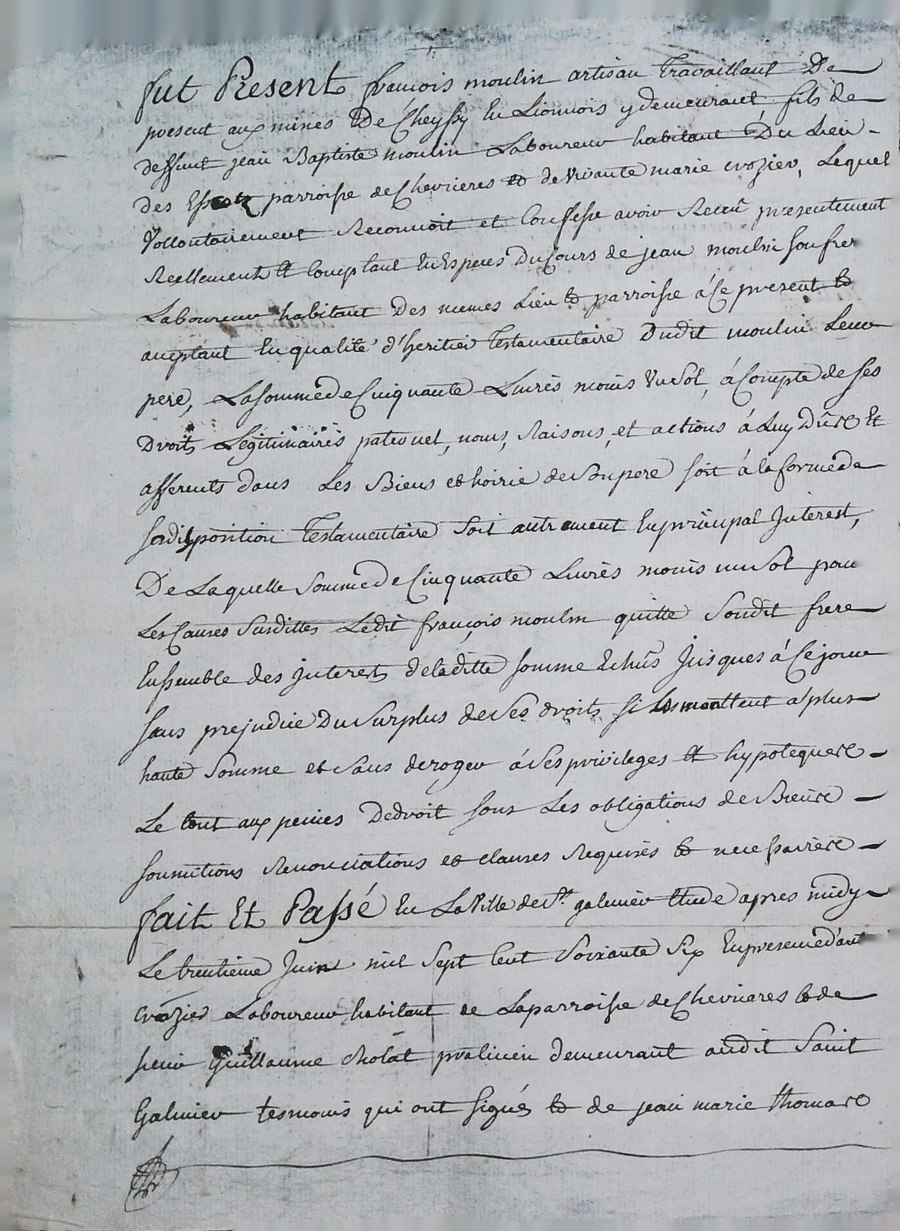 fut Present françois moulin artisan travaillant De
present aux mines De Cheyssy En Lionnois y demeurant fils de
deffunt jean Baptiste moulin Laboureur habitant Du Lieu
des parroisse de Chevrieres et de vivante marie crozier, Lequel
Vollontairement Reconnoit et Confesse avoir Receu presentement
Reellement et Comptant En Especes Du Cours de jean moulin son frere
Laboureur habitant Des memes Lieu et parroisse à Ce present et
aceptant En qualité d'heritier Testamentaire Dudit moulin Leur
pere, La somme de Cinquante Livres moins Un Sol, à Compte de ses
Droits Legitimaires paternel, noms, Raisons, et actions à Luy Dûs et
afferents dans Les Biens et hoirie de Son pere soit à la forme de
sa disposition Testamentaire Soit autrement En principal Interest,
De Laquelle Somme de Cinquante Livres moins un Sol pour
Les Causes Susdittes Ledit françois moulin quitte Sondit frere
Ensemble des Interests de laditte somme Echûs Jusques à Ce jour
sans prejudice Du Surplus de Ses droits si Ils montent à plus
haute Somme et Sans deroger à Ses privileges et hypoteques
Le tout aux peines De droit sous Les obligations de Biens
soumitions Renonciations et clauses Requises et necessaires
fait Et Passé En La Ville de St. galmier Etude apres midy
Le trentieme Juin mil Sept Cent Soixante Six En presence d'ant
crozier Laboureur habitant de La parroisse de Chevrieres et de
sieur Guillaume Cholat praticien demeurant audit Saint
Galmier tesmoins qui ont signés et de jean marie thomas